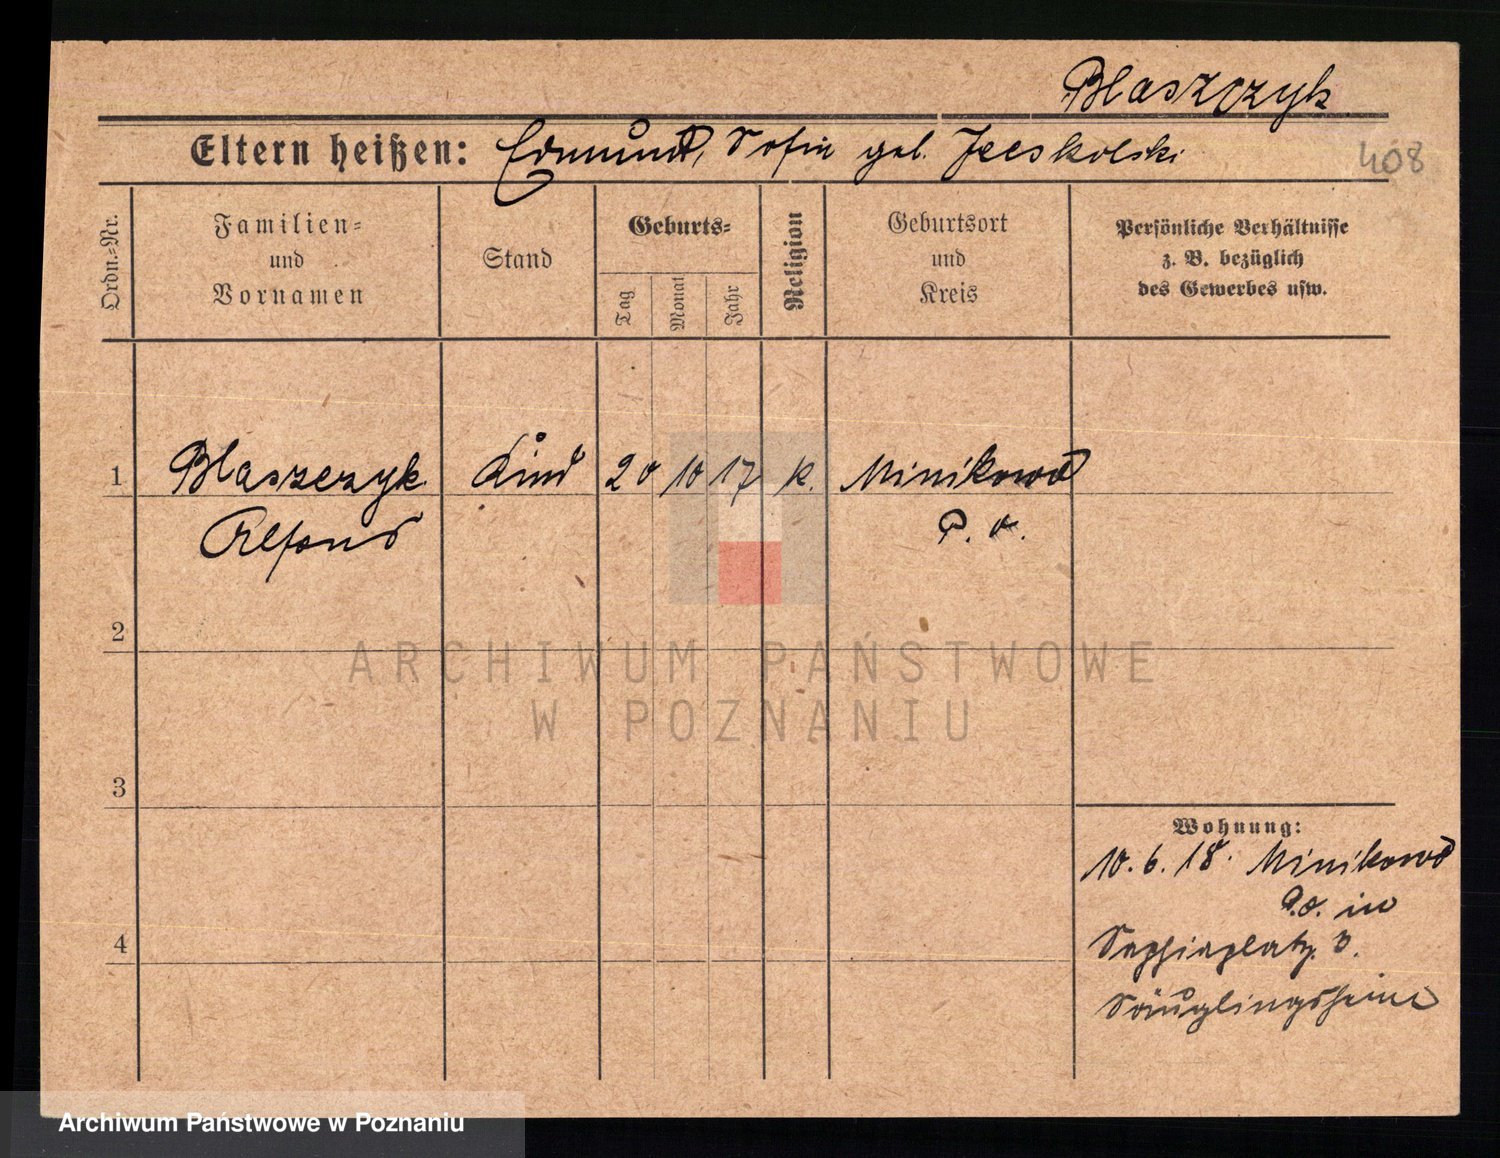 Blaszczyk
Eltern heißen: Edmund, Sofia geb. Jeeskolski
408
Ordn.-Nr.
Familien=
und
Vornamen
Stand
Geburts=
Tag
Monat
Jahr
Religion
Geburtsort
und
Kreis
Persönliche Verhältnisse
z. B. bezüglich
des Gewerbes usw.
1 Blaszczyk Kind 20 10 17 k. Minikowo
Alfons P. O.
2
ARCHIWUM PAŃSTWOWE
W POZNANIU
3
Wohnung:
10. 6. 18. Minikowo
P.O. in
4 Sophiaplatz 3.
Säuglingsheim
Archiwum Państwowe w Poznaniu